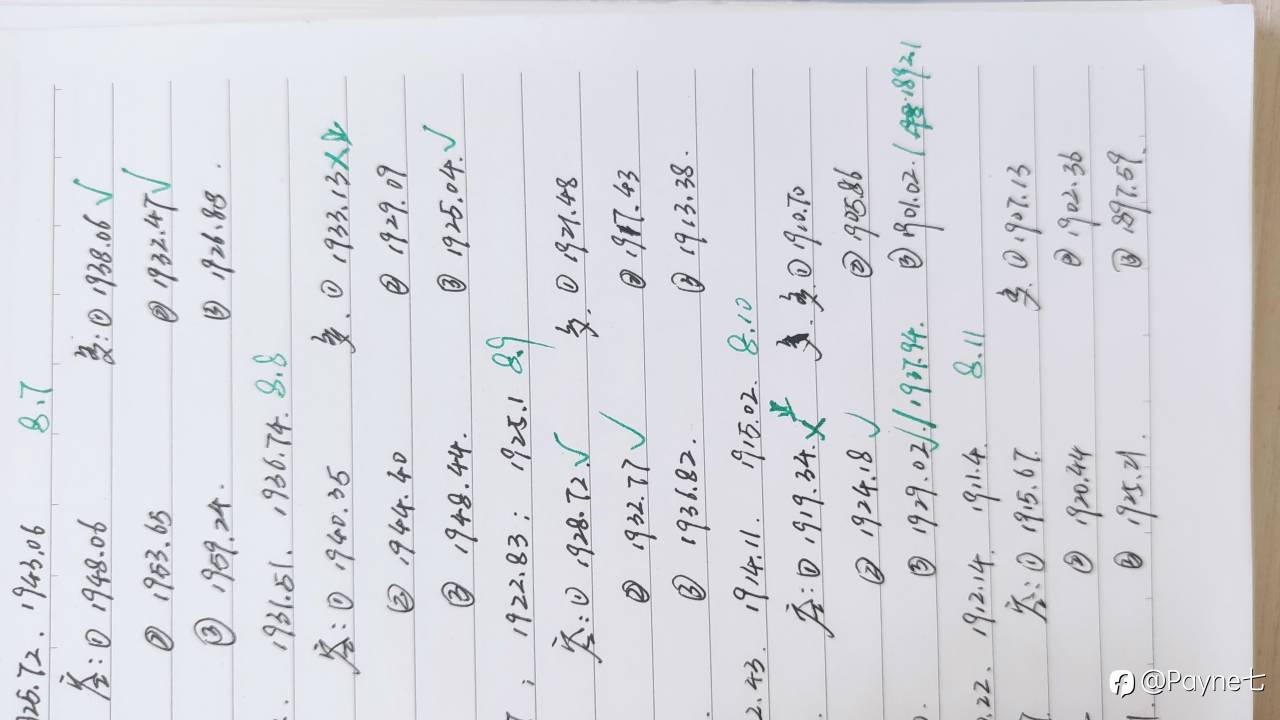 926.72. 1943.06 8.7
空: ① 1948.06 多: ① 1938.06 √
② 1953.65 ② 1932.47 √
③ 1959.24. ③ 1926.88.
1931.51. 1936.74. 8.8
空: ① 1940.35 多. ① 1933.13 ×
② 1944.40 ② 1929.09
③ 1948.44. ③ 1925.04. √
; 1922.83; 1925.1 8.9
空: ① 1928.72. √ 多. ① 1921.48
② 1932.77 √ ② 1917.43
③ 1936.82. ③ 1913.38.
2.43. 1914.11. 1915.02. 8.10
空: ① 1919.34. × 多. ① 1910.70
② 1924.18 √ ② 1905.86
③ 1929.02. √ / 1937.94. ③ 1901.02. / 1892.1
.22. 1912.14. 1911.4. 8.11
空: ① 1915.67. 多. ① 1907.13
② 1920.44 ② 1902.36
③ 1925.21. ③ 1897.59.
@Payne七